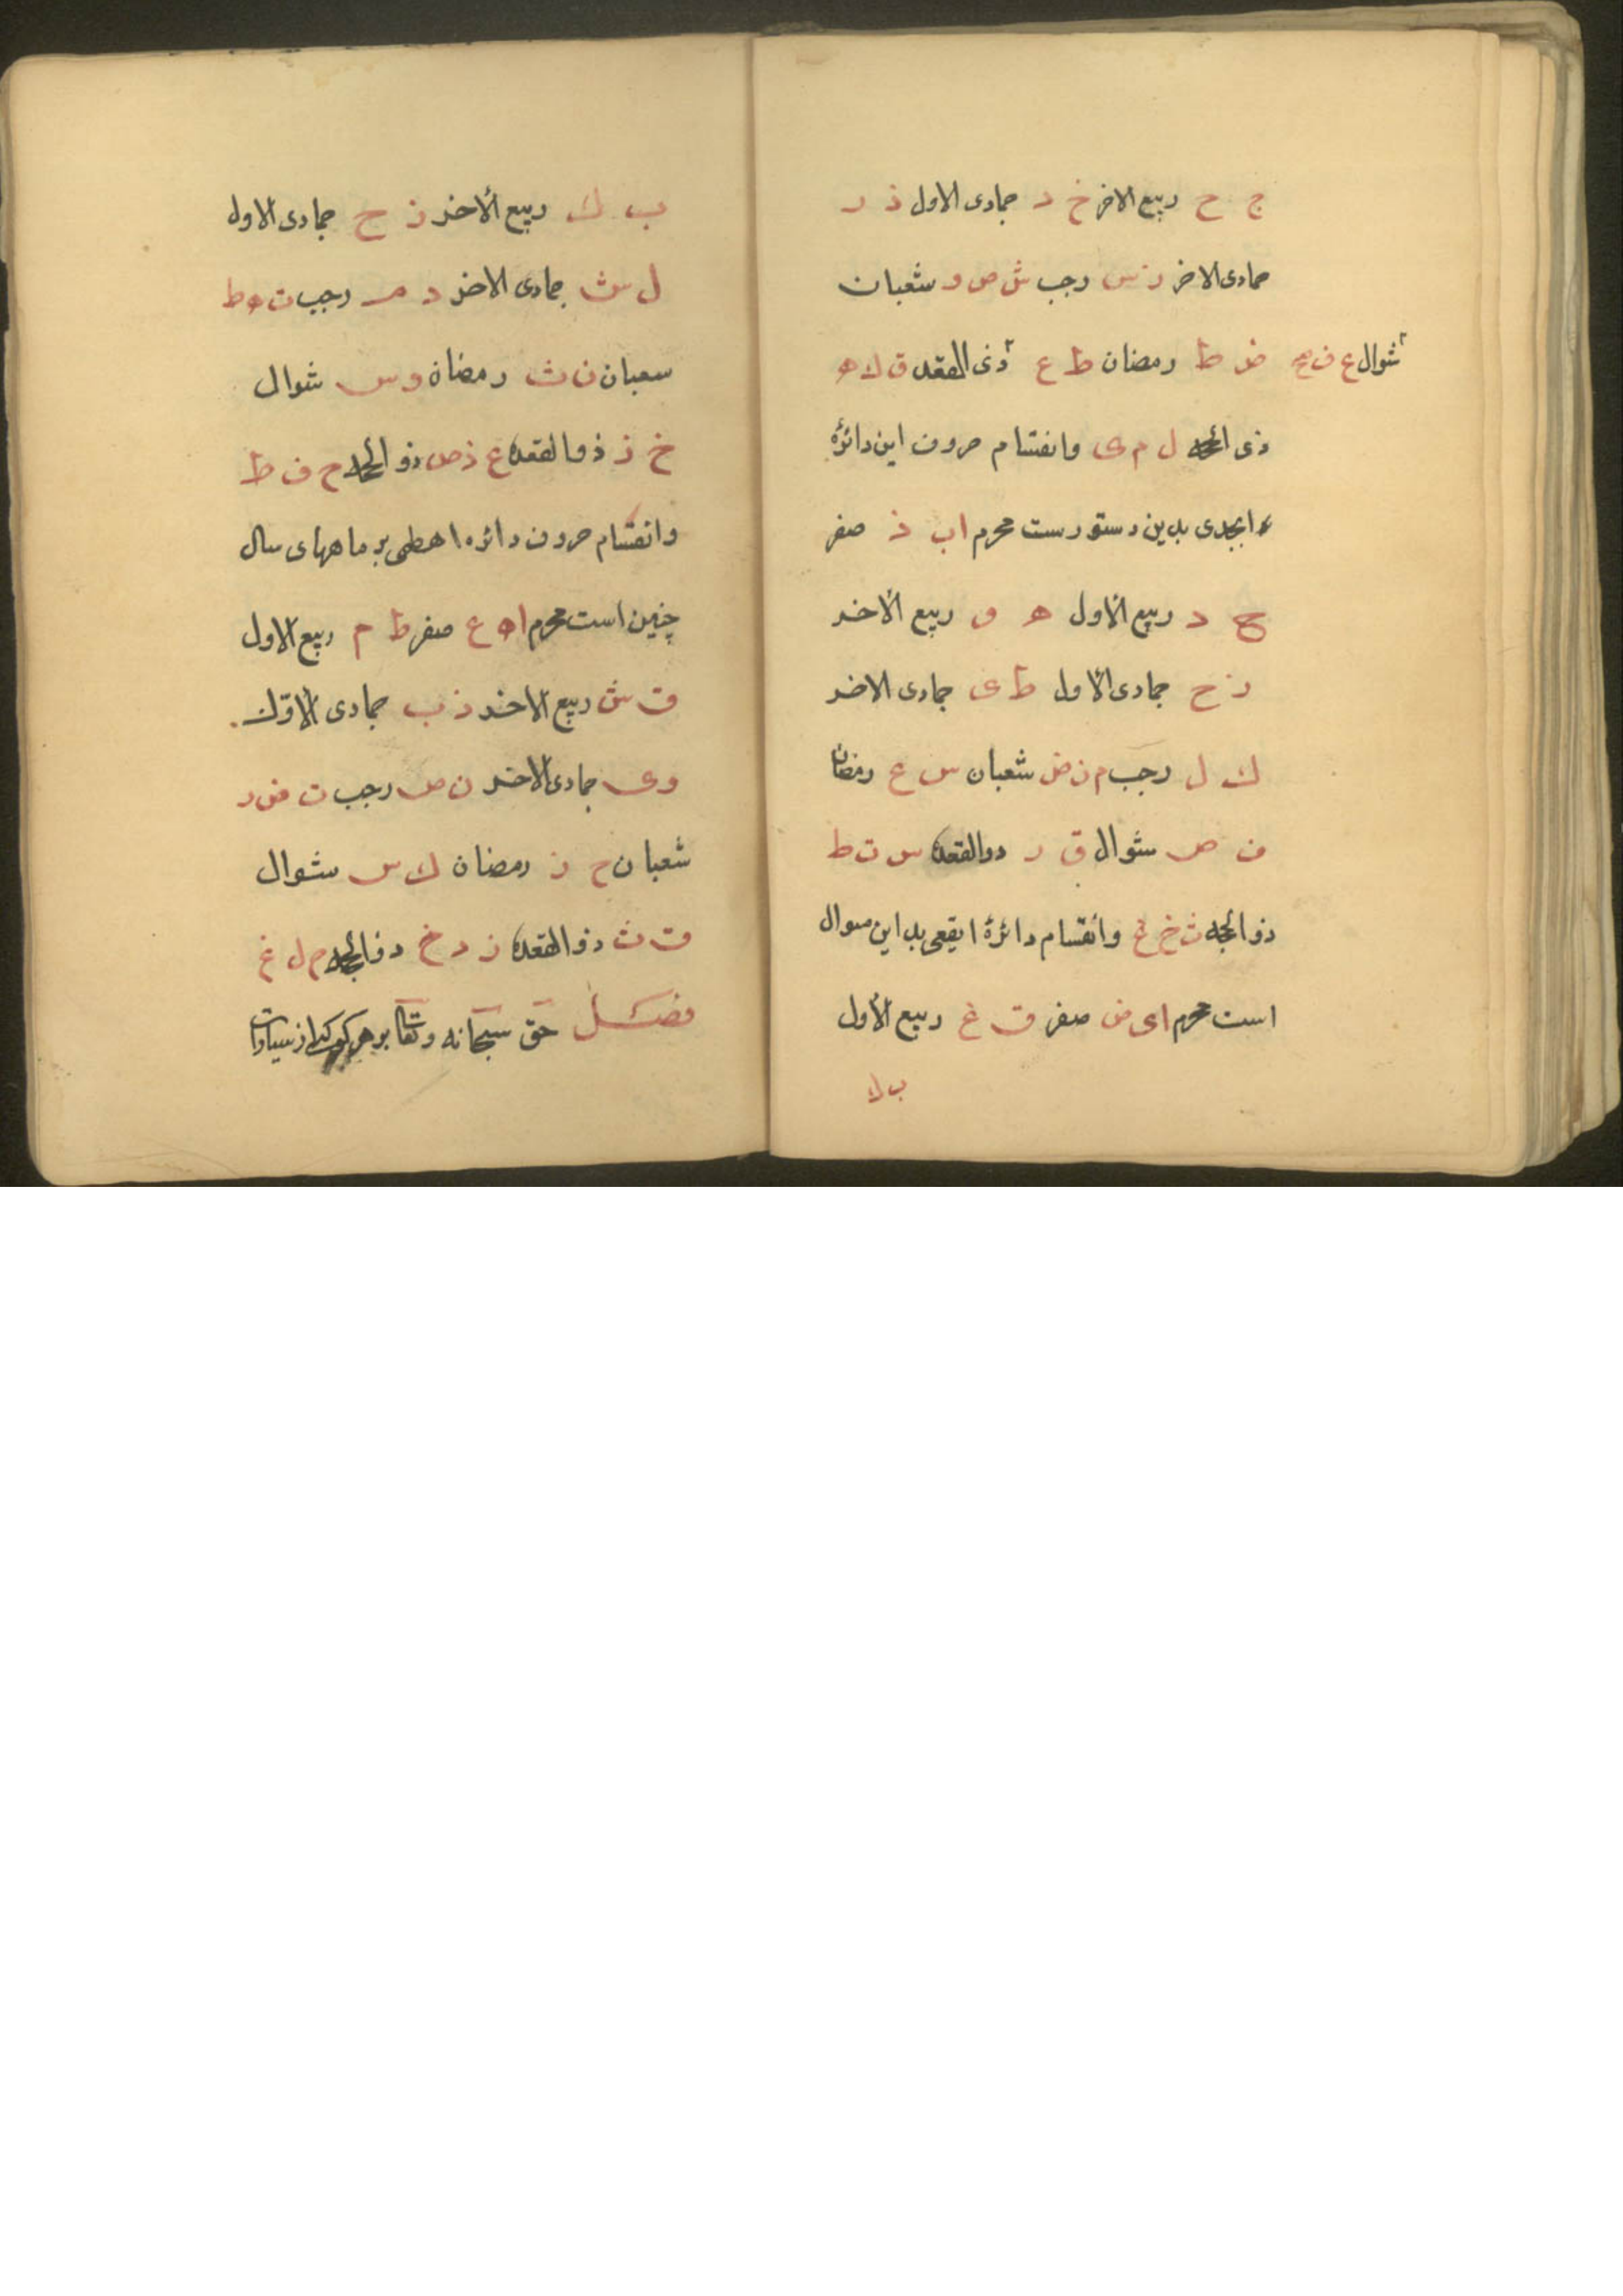 ج ح ربيع الاخر خ د جمادى الاول ذ ر
جمادى الاخر ز س رجب ش ص و شعبان
ض ط رمضان ط ع ذى القعده ق ك ه
شوال ع ف
ذى الحجه ل م ى وانقسام حروف اين دائرۀ
ابجدى بدين دستورست محرم ا ب ذ صفر
ج د ربيع الأول ه و ربيع الأخر
ز ح جمادى الأول ط ى جمادى الاخر
ك ل رجب م ن ض شعبان س ع رمضان
ف ص شوال ق ر ذوالقعده س ت ط
ذوالحجه ث خ غ وأنقسام دائرۀ ايقعى بداين منوال
است محرم ا ى ض صفر ق غ ربيع الأول
ب ك
ب ك ربيع الأخر ز ح جمادى الاول
ل ش جمادى الاخر د م رجب ت ه ط
سعبان ن ث رمضان و س شوال
خ ز ذوالقعده ع ذ ص ذوالحجه ح ف ظ
وانقسام حروف دائره اهطمى بر ماههاى سال
چنين است محرم ا ه ع صفر ط م ربيع الاول
ف ش ربيع الاخر ذ ب جمادى الأوّل
و ى جمادى الاخر ن ص رجب ت ض ر
شعبان ح ز رمضان ك س شوال
ق ث ذوالقعده ز د خ ذوالحجه ح ل غ
فصل حق سبحانه وتعا بر هر از